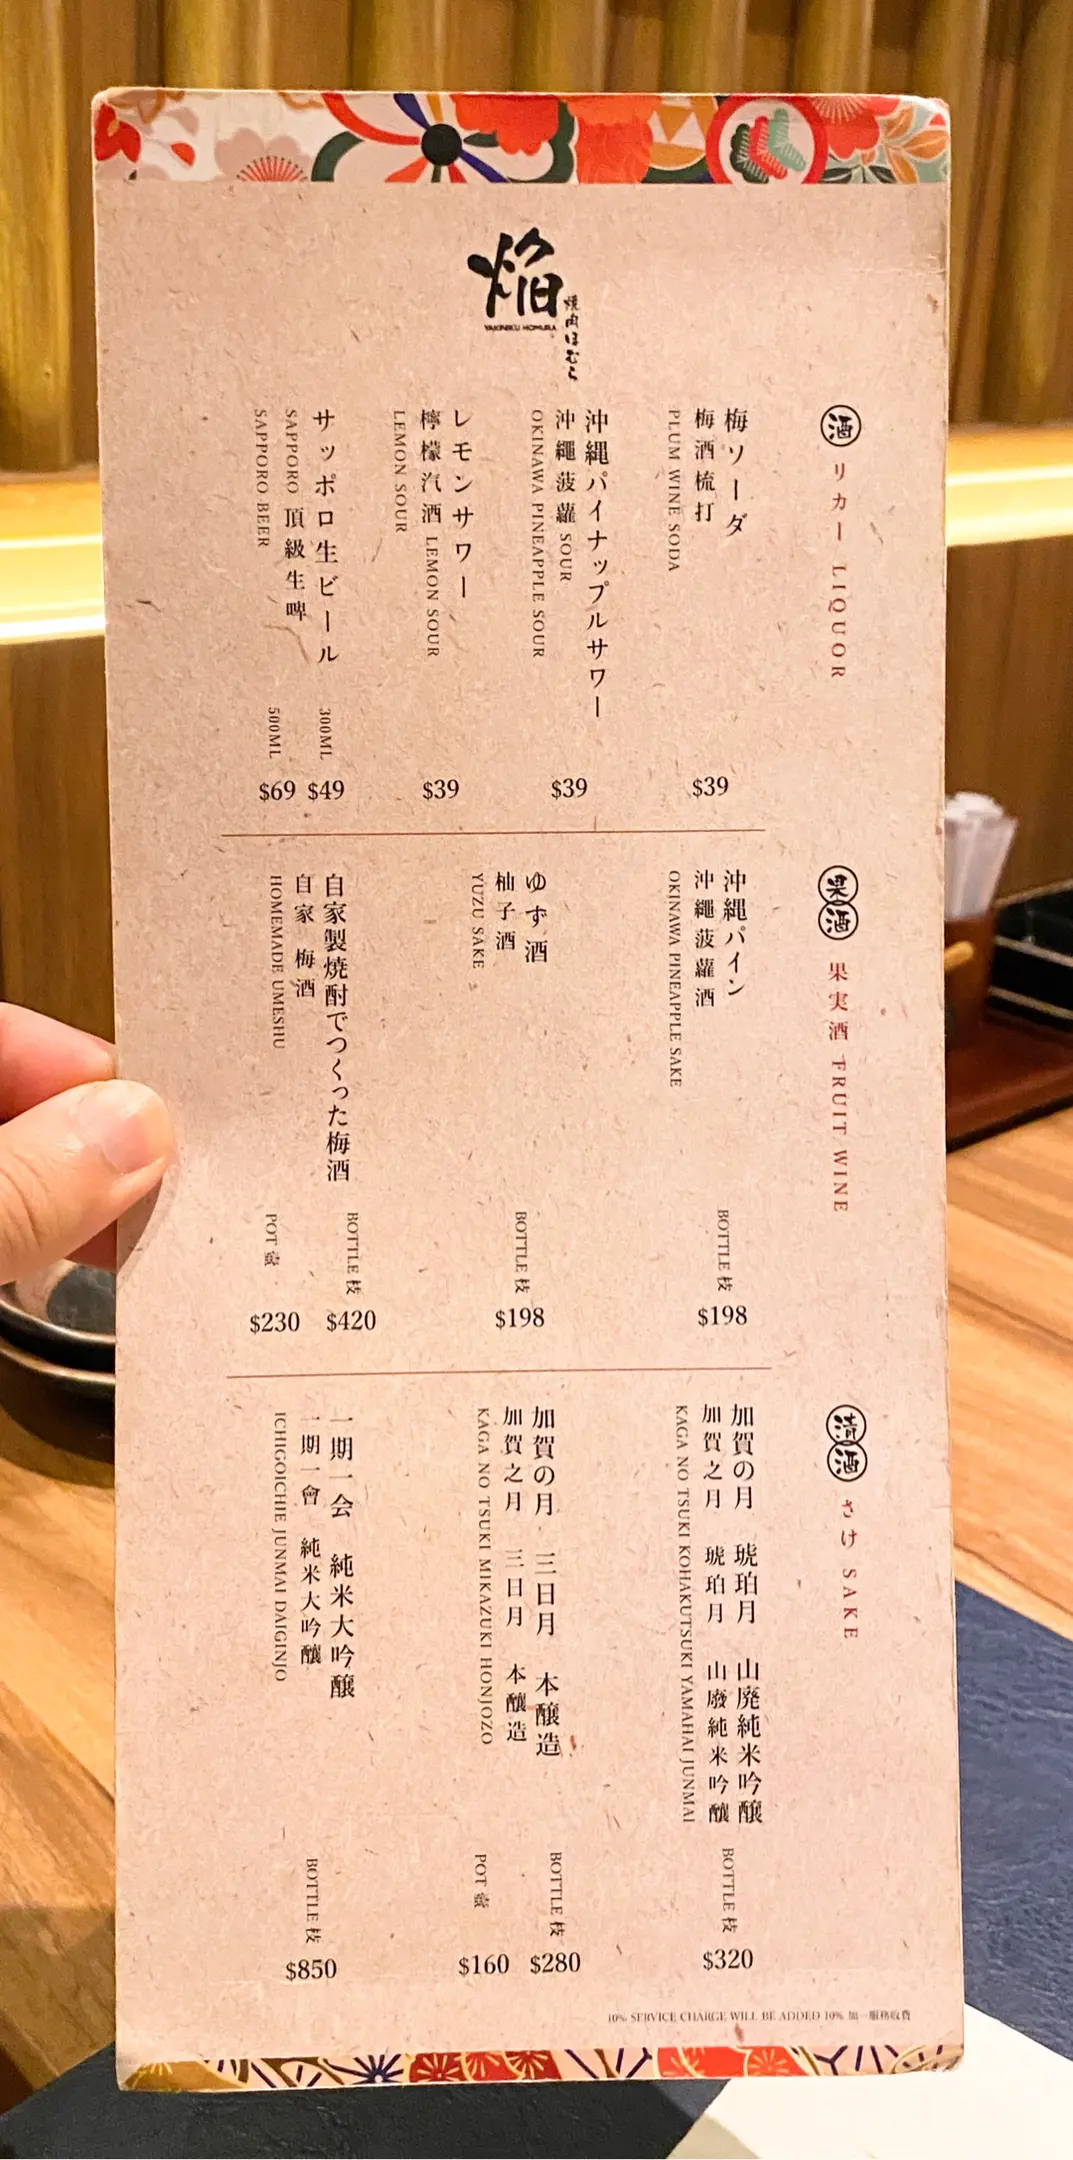 焔
焼肉ほむら
YAKINIKU HOMURA
酒 リカー LIQUOR
梅ソーダ
梅酒梳打
PLUM WINE SODA
$39
沖縄パイナップルサワー
沖繩菠蘿 SOUR
OKINAWA PINEAPPLE SOUR
$39
レモンサワー
檸檬汽酒 LEMON SOUR
LEMON SOUR
$39
サッポロ生ビール
SAPPORO 頂級生啤
SAPPORO BEER
300ML $49
500ML $69
果酒 果実酒 FRUIT WINE
沖縄パイン
沖繩菠蘿酒
OKINAWA PINEAPPLE SAKE
BOTTLE 枝 $198
ゆず酒
柚子酒
YUZU SAKE
BOTTLE 枝 $198
自家製焼酎でつくった梅酒
自家 梅酒
HOMEMADE UMESHU
BOTTLE 枝 $420
POT 壺 $230
清酒 さけ SAKE
加賀の月 琥珀月 山廃純米吟醸
加賀之月 琥珀月 山廢純米吟釀
KAGA NO TSUKI KOHAKUTSUKI YAMAHAI JUNMAI
BOTTLE 枝 $320
加賀の月 三日月 本醸造
加賀之月 三日月 本釀造
KAGA NO TSUKI MIKAZUKI HONJOZO
BOTTLE 枝 $280
POT 壺 $160
一期一会 純米大吟醸
一期一會 純米大吟釀
ICHIGOICHIE JUNMAI DAIGINJO
BOTTLE 枝 $850
10% SERVICE CHARGE WILL BE ADDED 10% 加一服務收費